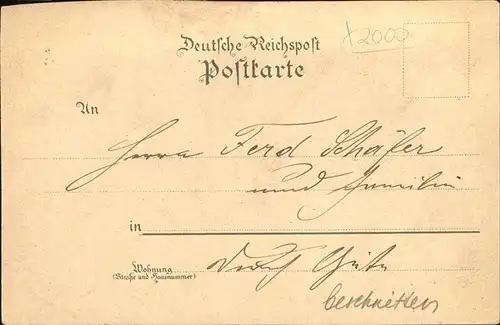 x 2000
Deutsche Reichspost
Postkarte
An
Herrn Ferd Schäfer
und Familie
in
Wohnung
(Straße und Hausnummer)
durch Güte
beschnitten